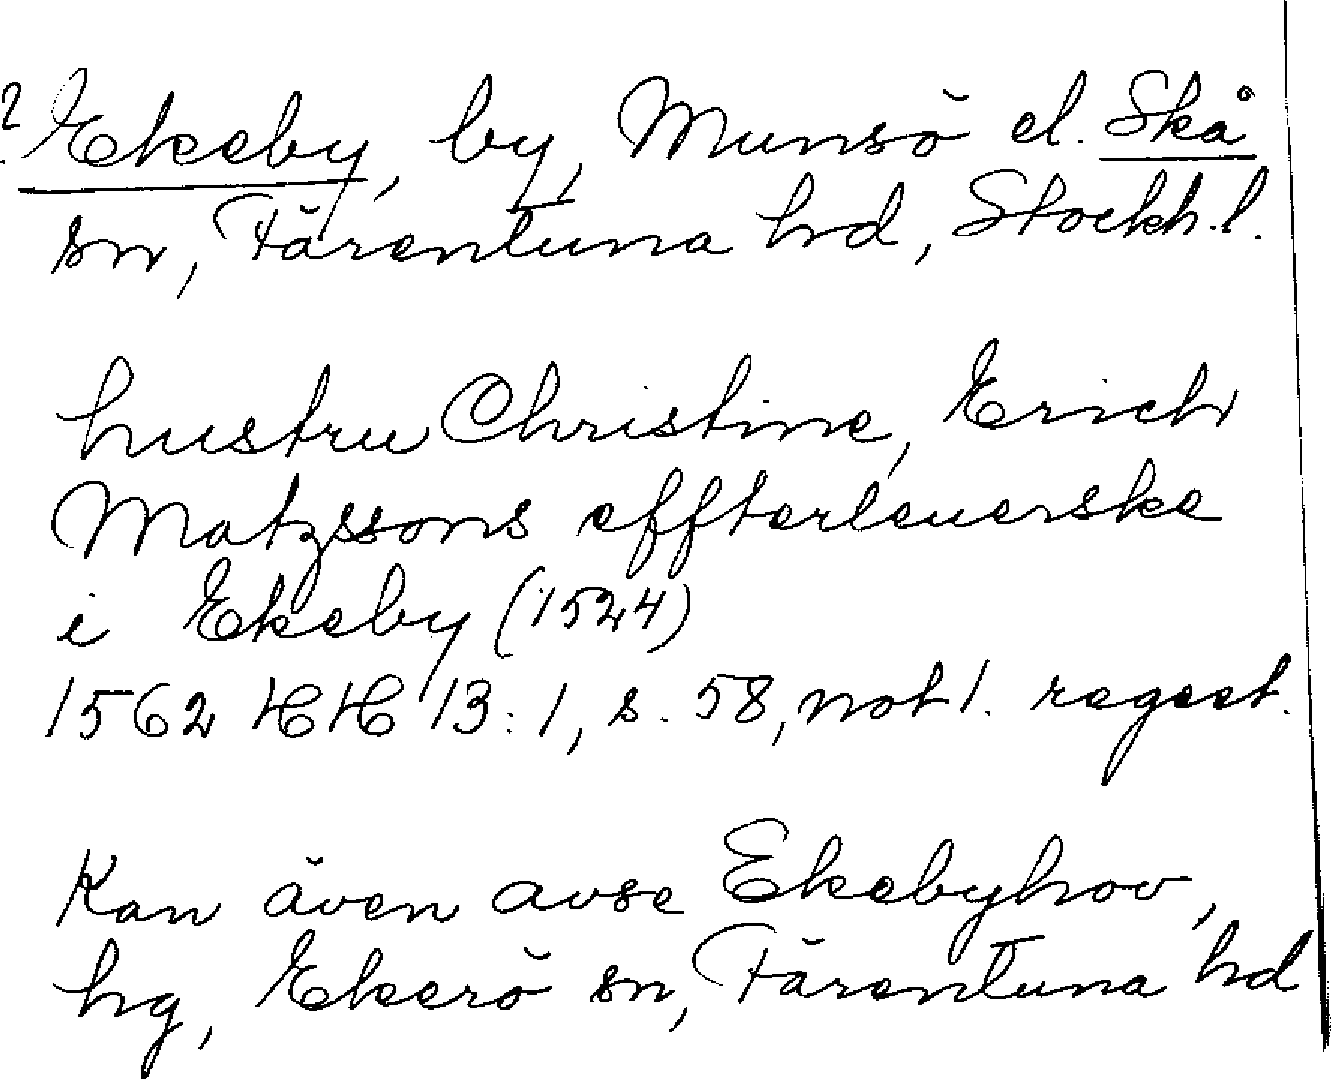 ? Ekeby, by, Munsö el. Skå
sn, Färentuna hd, Stockh. l.
hustru Christine, Erich
Matzssons effterleuerske
i Ekeby (1524)
1562 HH 13:1, s. 58, not 1. regest.
Kan även avse Ekebyhov,
hg, Ekerö sn, Färentuna hd